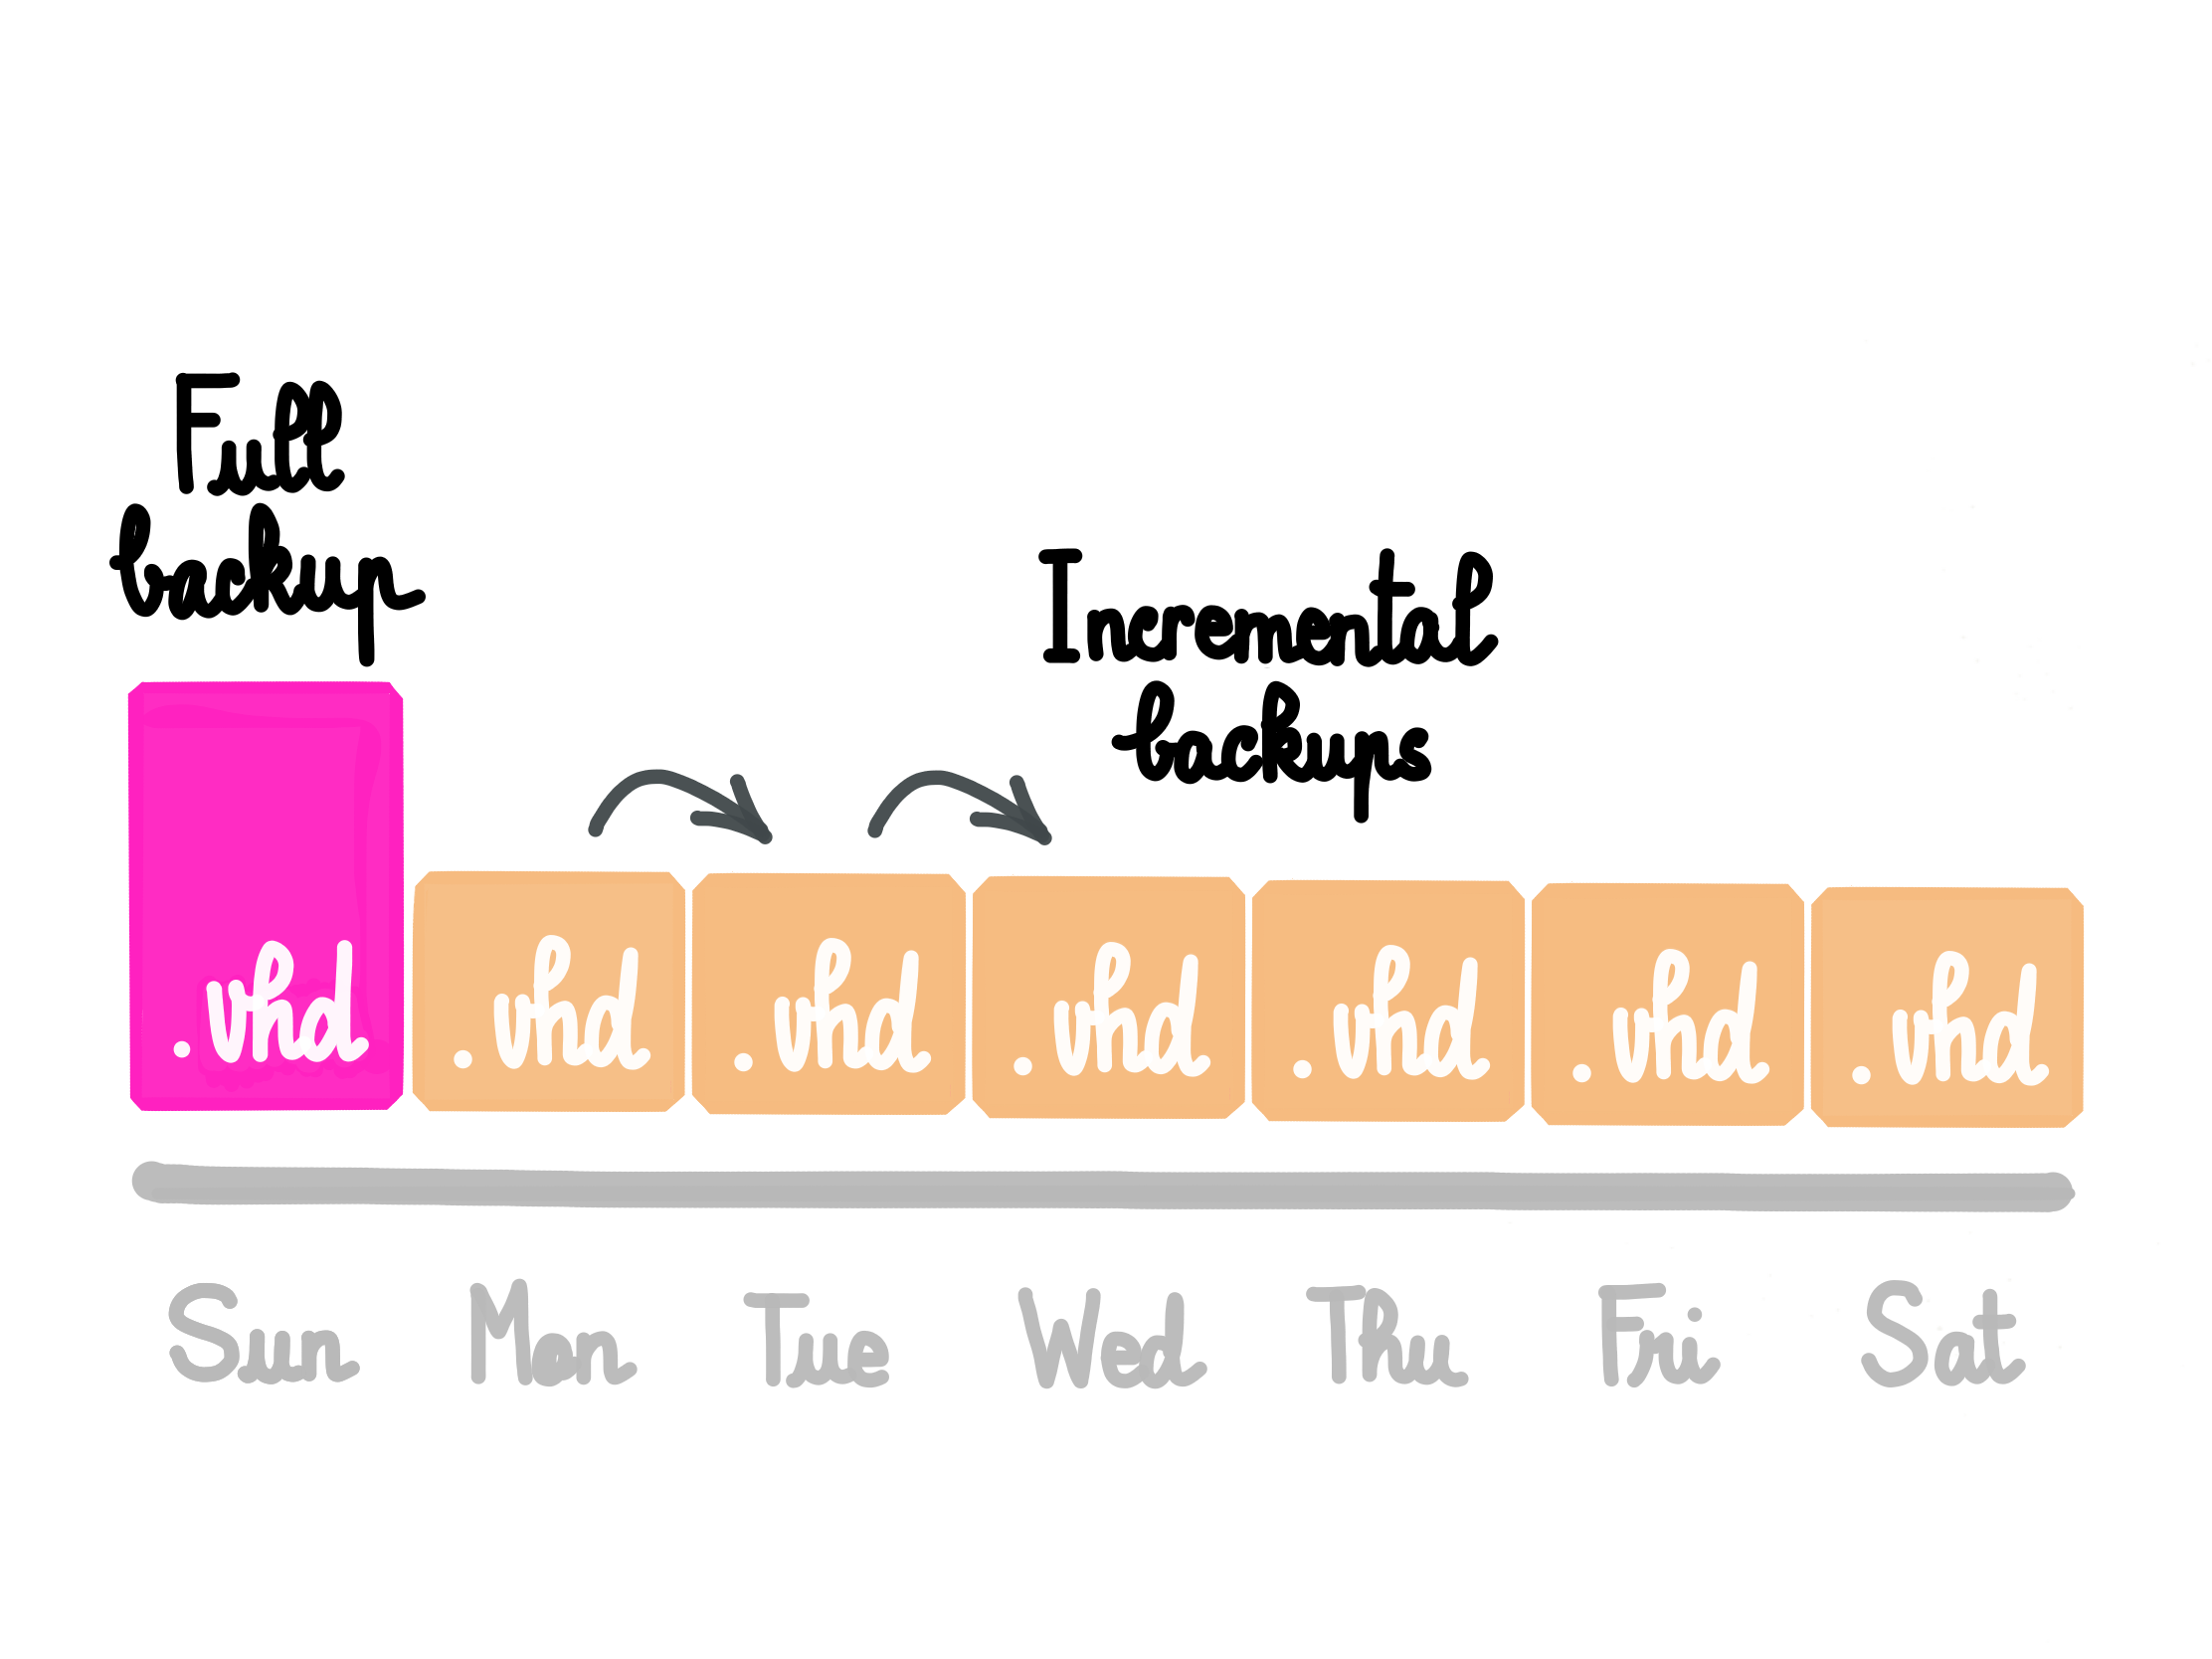 Full
backup
Incremental
backups
.vhd .vhd .vhd .vhd .vhd .vhd .vhd
Sun Mon Tue Wed Thu Fri Sat